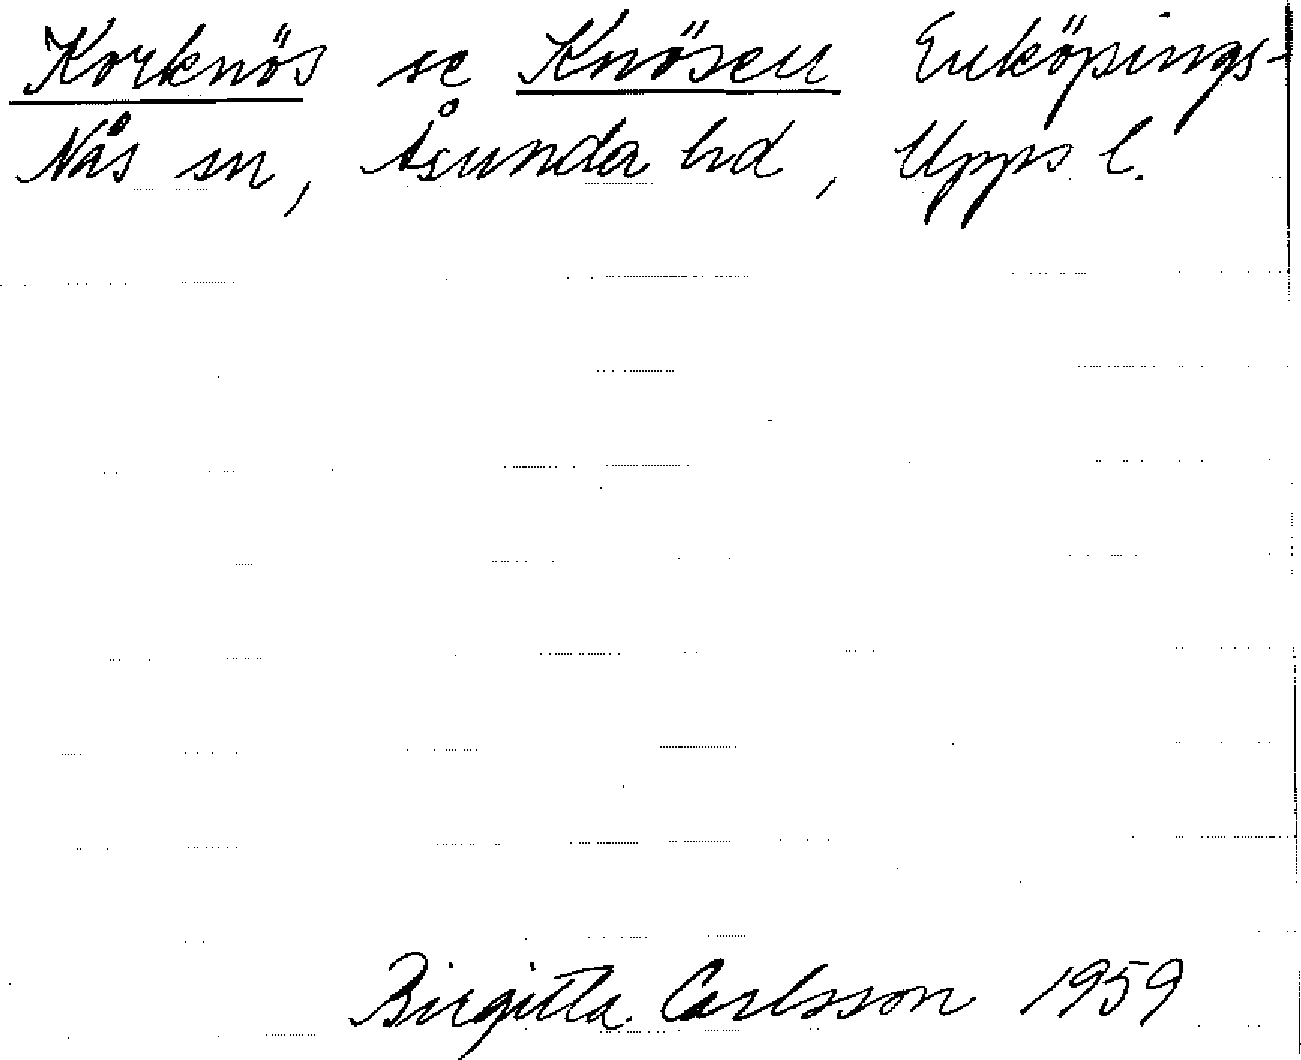 Korknös se Knösen Enköpings-
Näs sn, Åsunda hd, Upps l.
Birgitta Carlsson 1959